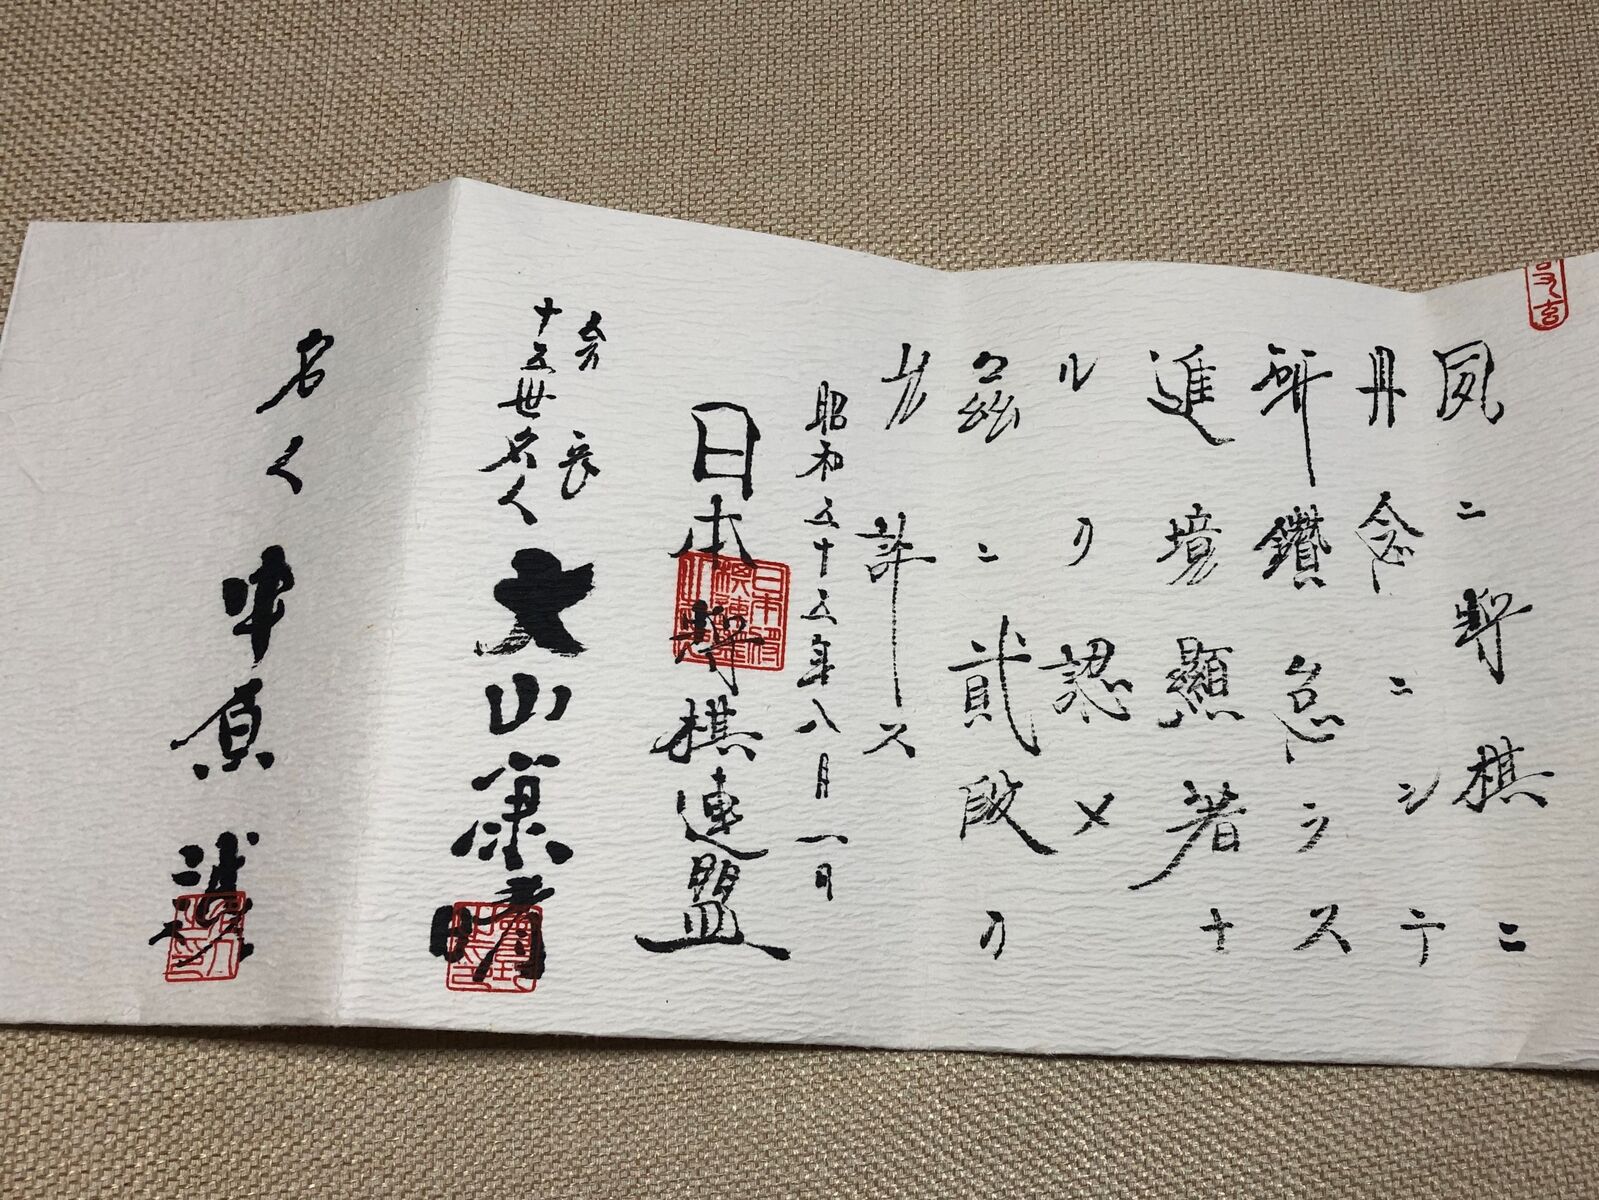 夙ニ将棋ニ
丹念ニシテ
研鑽怠ラス
進境顯著ナ
ルヲ認メ
茲ニ貳段ヲ
允許ス
昭和五十五年八月一日
日本将棋連盟
会長
十五世名人 大山康晴
名人 中原誠